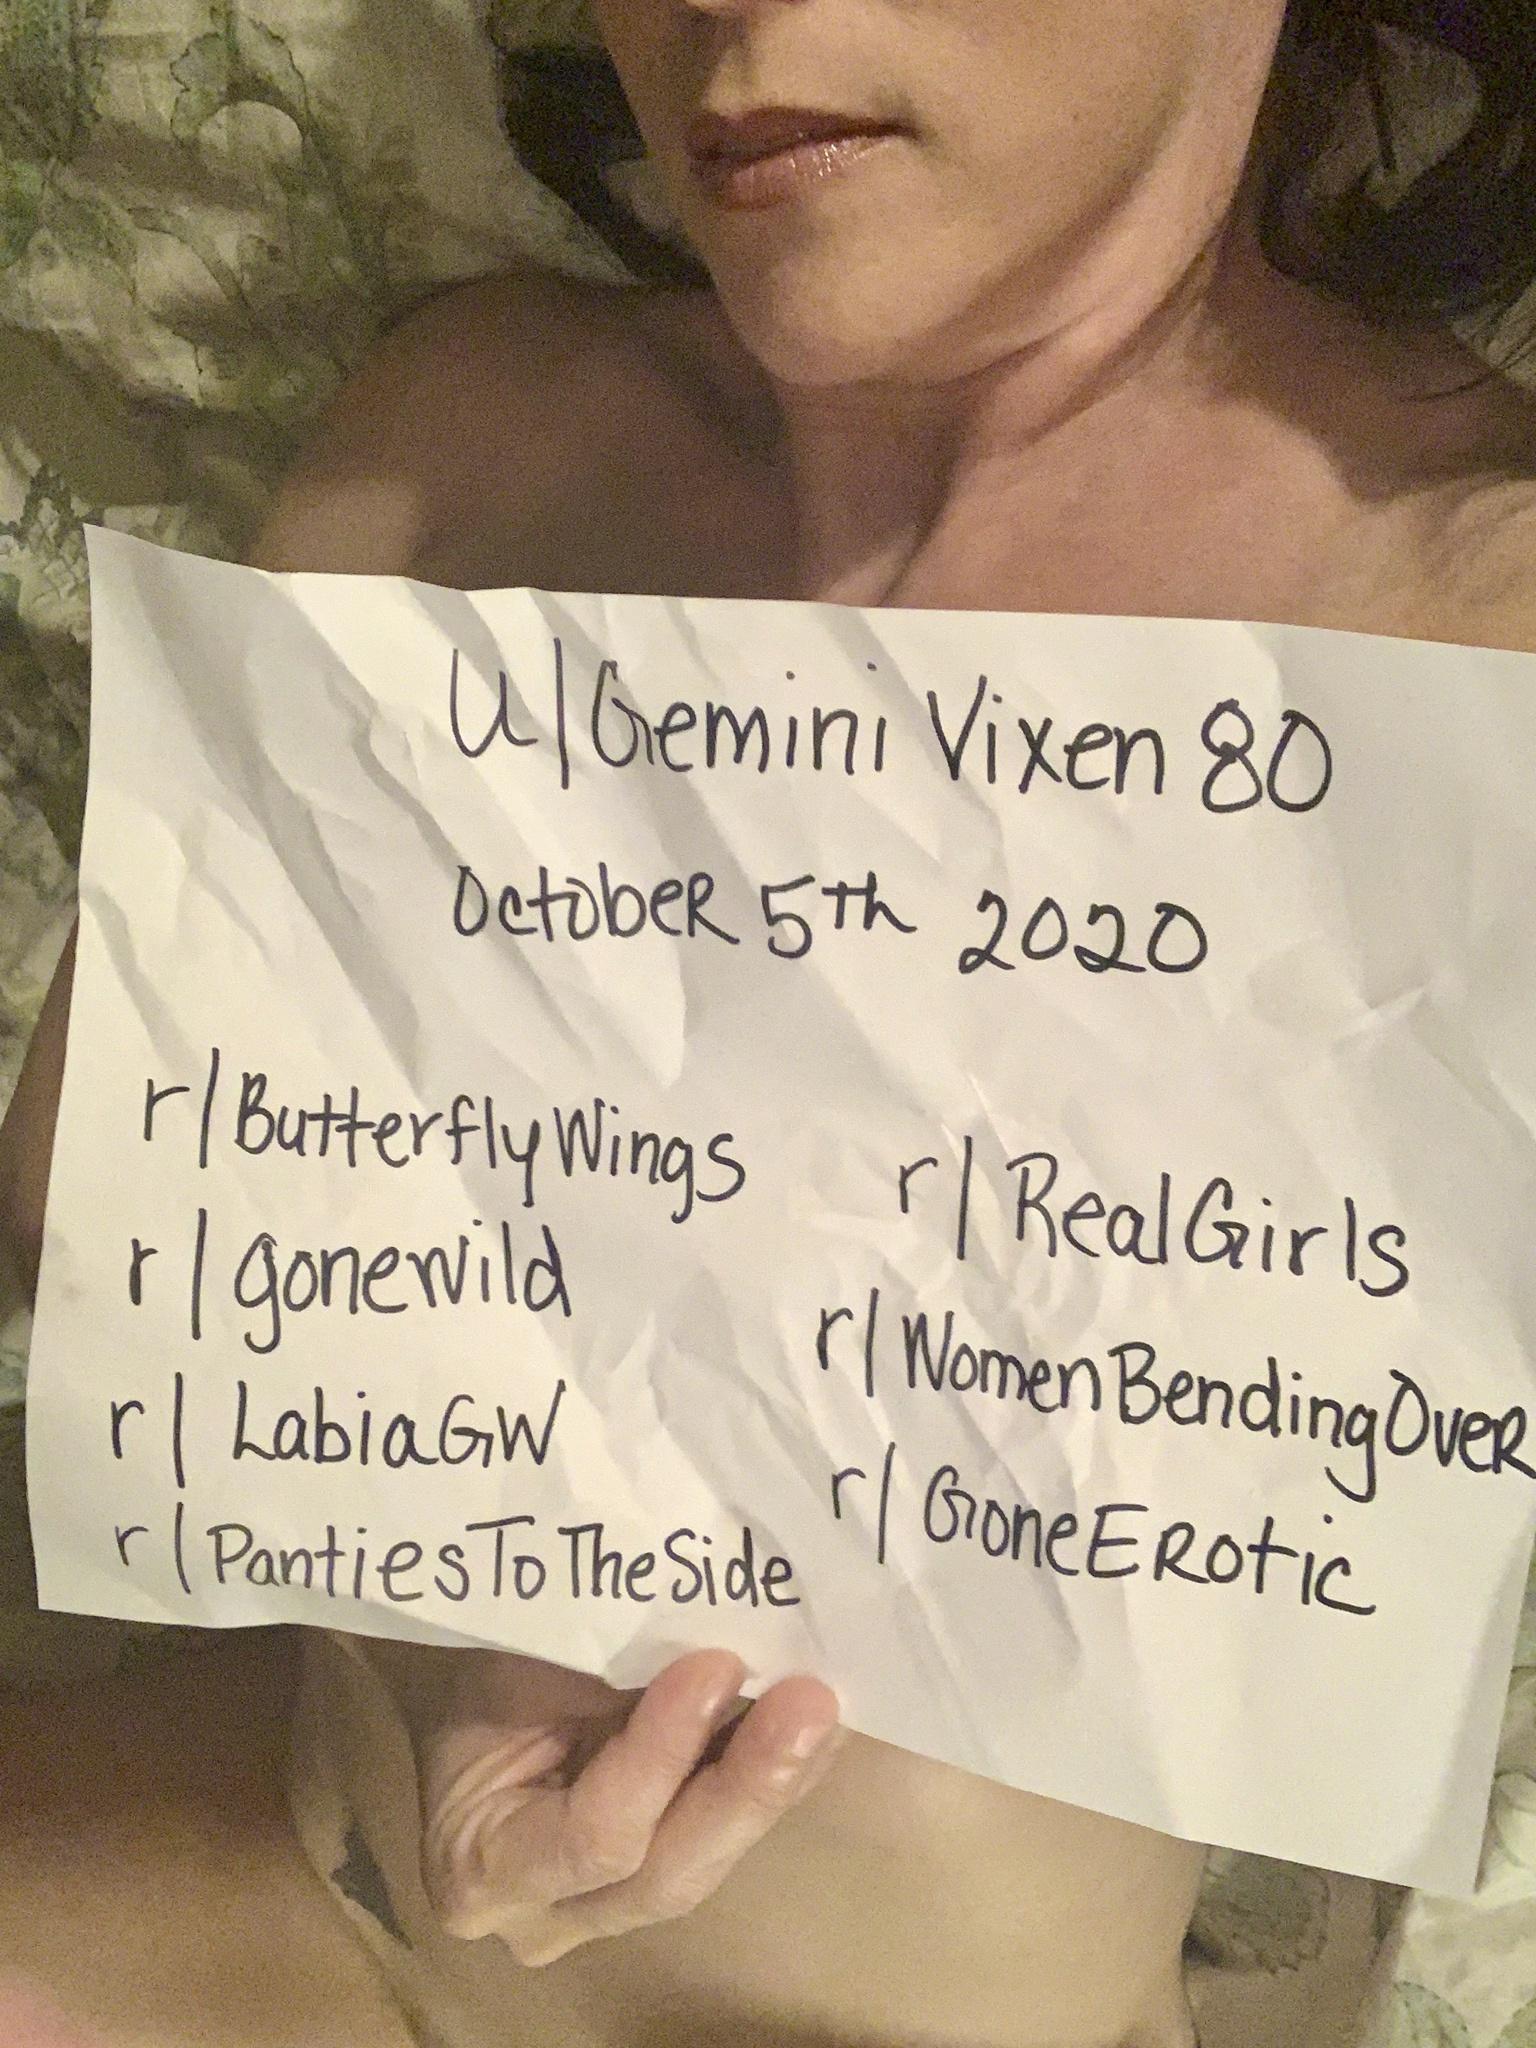 u/GeminiVixen80
October 5th 2020
r/ButterflyWings
r/gonewild
r/LabiaGW
r/PantiesToTheSide
r/RealGirls
r/WomenBendingOver
r/GoneErotic